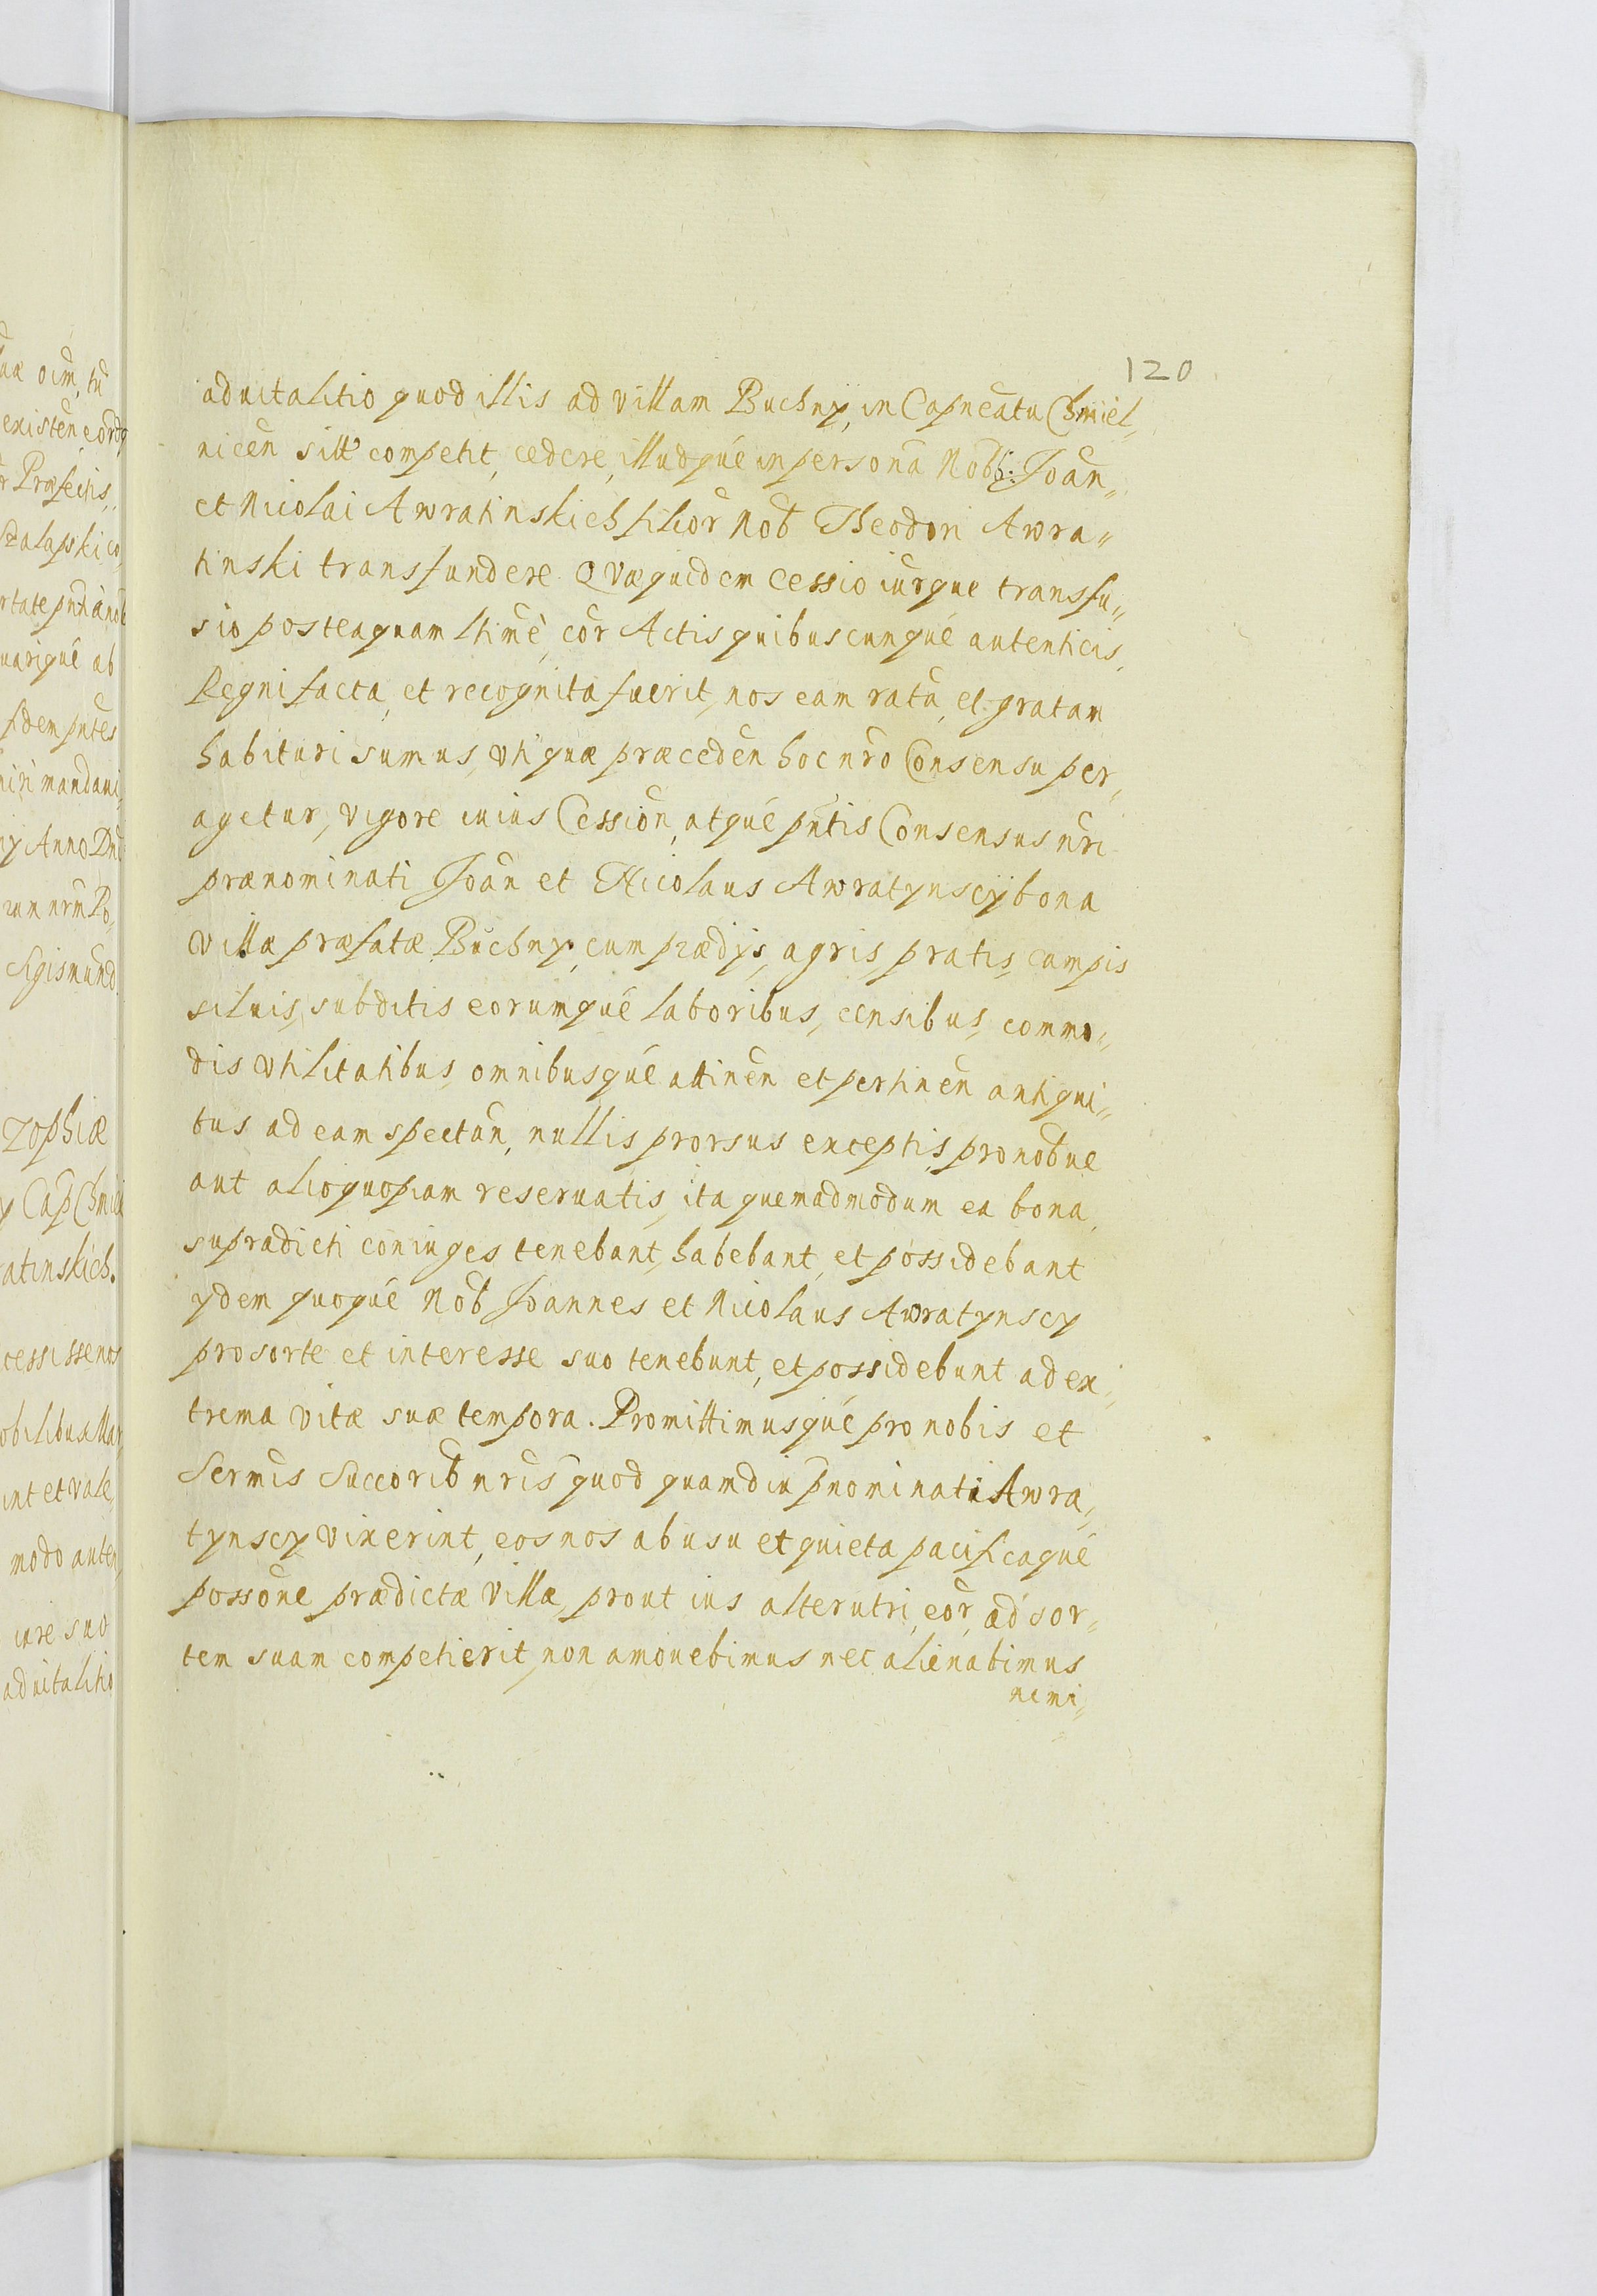 120
aduitalitio quod illis ad villam Buchny, in Capneatu Chmiel„
nicen̄ sitt competit, cedere, illudqué in persona Nobb: Joan„
et Nicolai Awratinskich filior̄ Nob̄ Theodori Awra„
tinski transfundere. Quæquidem cessio iurqúe transfu„
sio posteaquam ltimè, cor̄ Actis quibuscunqué autenticis,
Regni facta, et recognita fuerit, nos eam ratā, et gratam
habituri sumus, vti quæ præceden̄ hoc nr̄o Consensu per„
agetur, vigore cuius Cession̄, atqué pn̄tis Consensus nr̄i
prænominati Joan̄ et Nicolaus Awratynscy bona
villæ præfatæ Buchny, cum prædÿs, agris, pratis, campis
siluis, subditis eorumqué laboribus, censibus, commo„
dis vtilitatibus, omnibusqué attinen̄ et pertinen̄ antiqui„
tus ad eam spectan̄, nullis prorsus exceptis, pro nob̄ue
aut alio quopiam reseruatis, ita quemadmodum ea bona,
supradicti coniuges tenebant, habebant, et possidebant
ydem quoqué Nob̄ Joannes et Nicolaus Awratynscy
pro sorte et interesse suo tenebunt, et possidebunt ad ex„
trema vitæ suæ tempora. Promittimusqué pro nobis et
Sermis Succorib̄ nr̄is quod quamdiu p̄nominati Awra„
tynscy vixerint, eos nos ab usu et quieta pacificaqué
posson̄e prædictæ villæ, prout ius alterutri, eor̄, ad sor„
tem suam competierit, non amouebimus nec alienabimus
nemi„